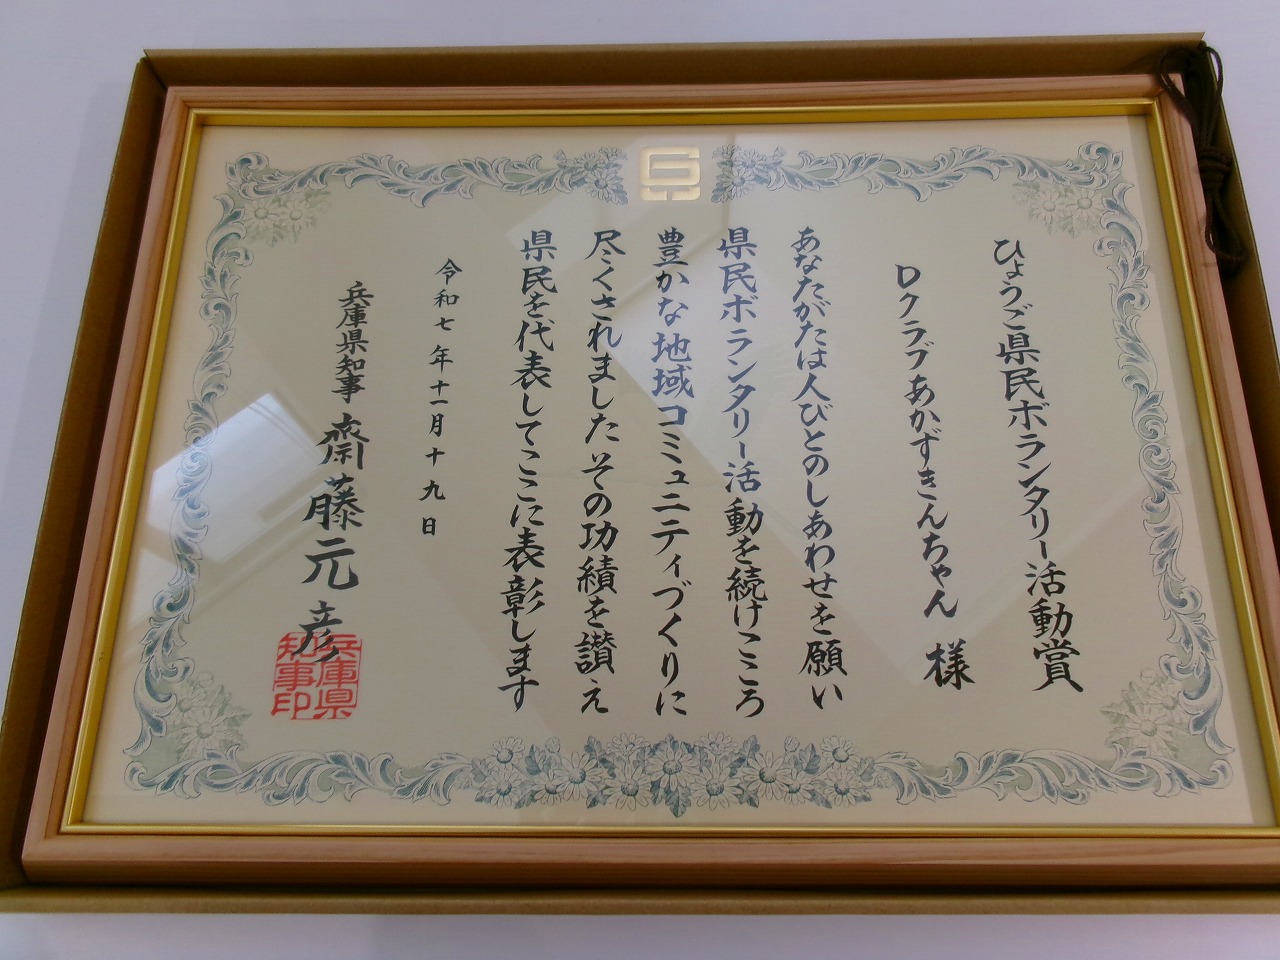 ひょうご県民ボランタリー活動賞
Dクラブあかずきんちゃん 様
あなたがたは人びとのしあわせを願い
県民ボランタリー活動を続けこころ
豊かな地域コミュニティづくりに
尽くされましたその功績を讃え
県民を代表してここに表彰します
令和七年十一月十九日
兵庫県知事 齋藤元彦
兵庫県知事印